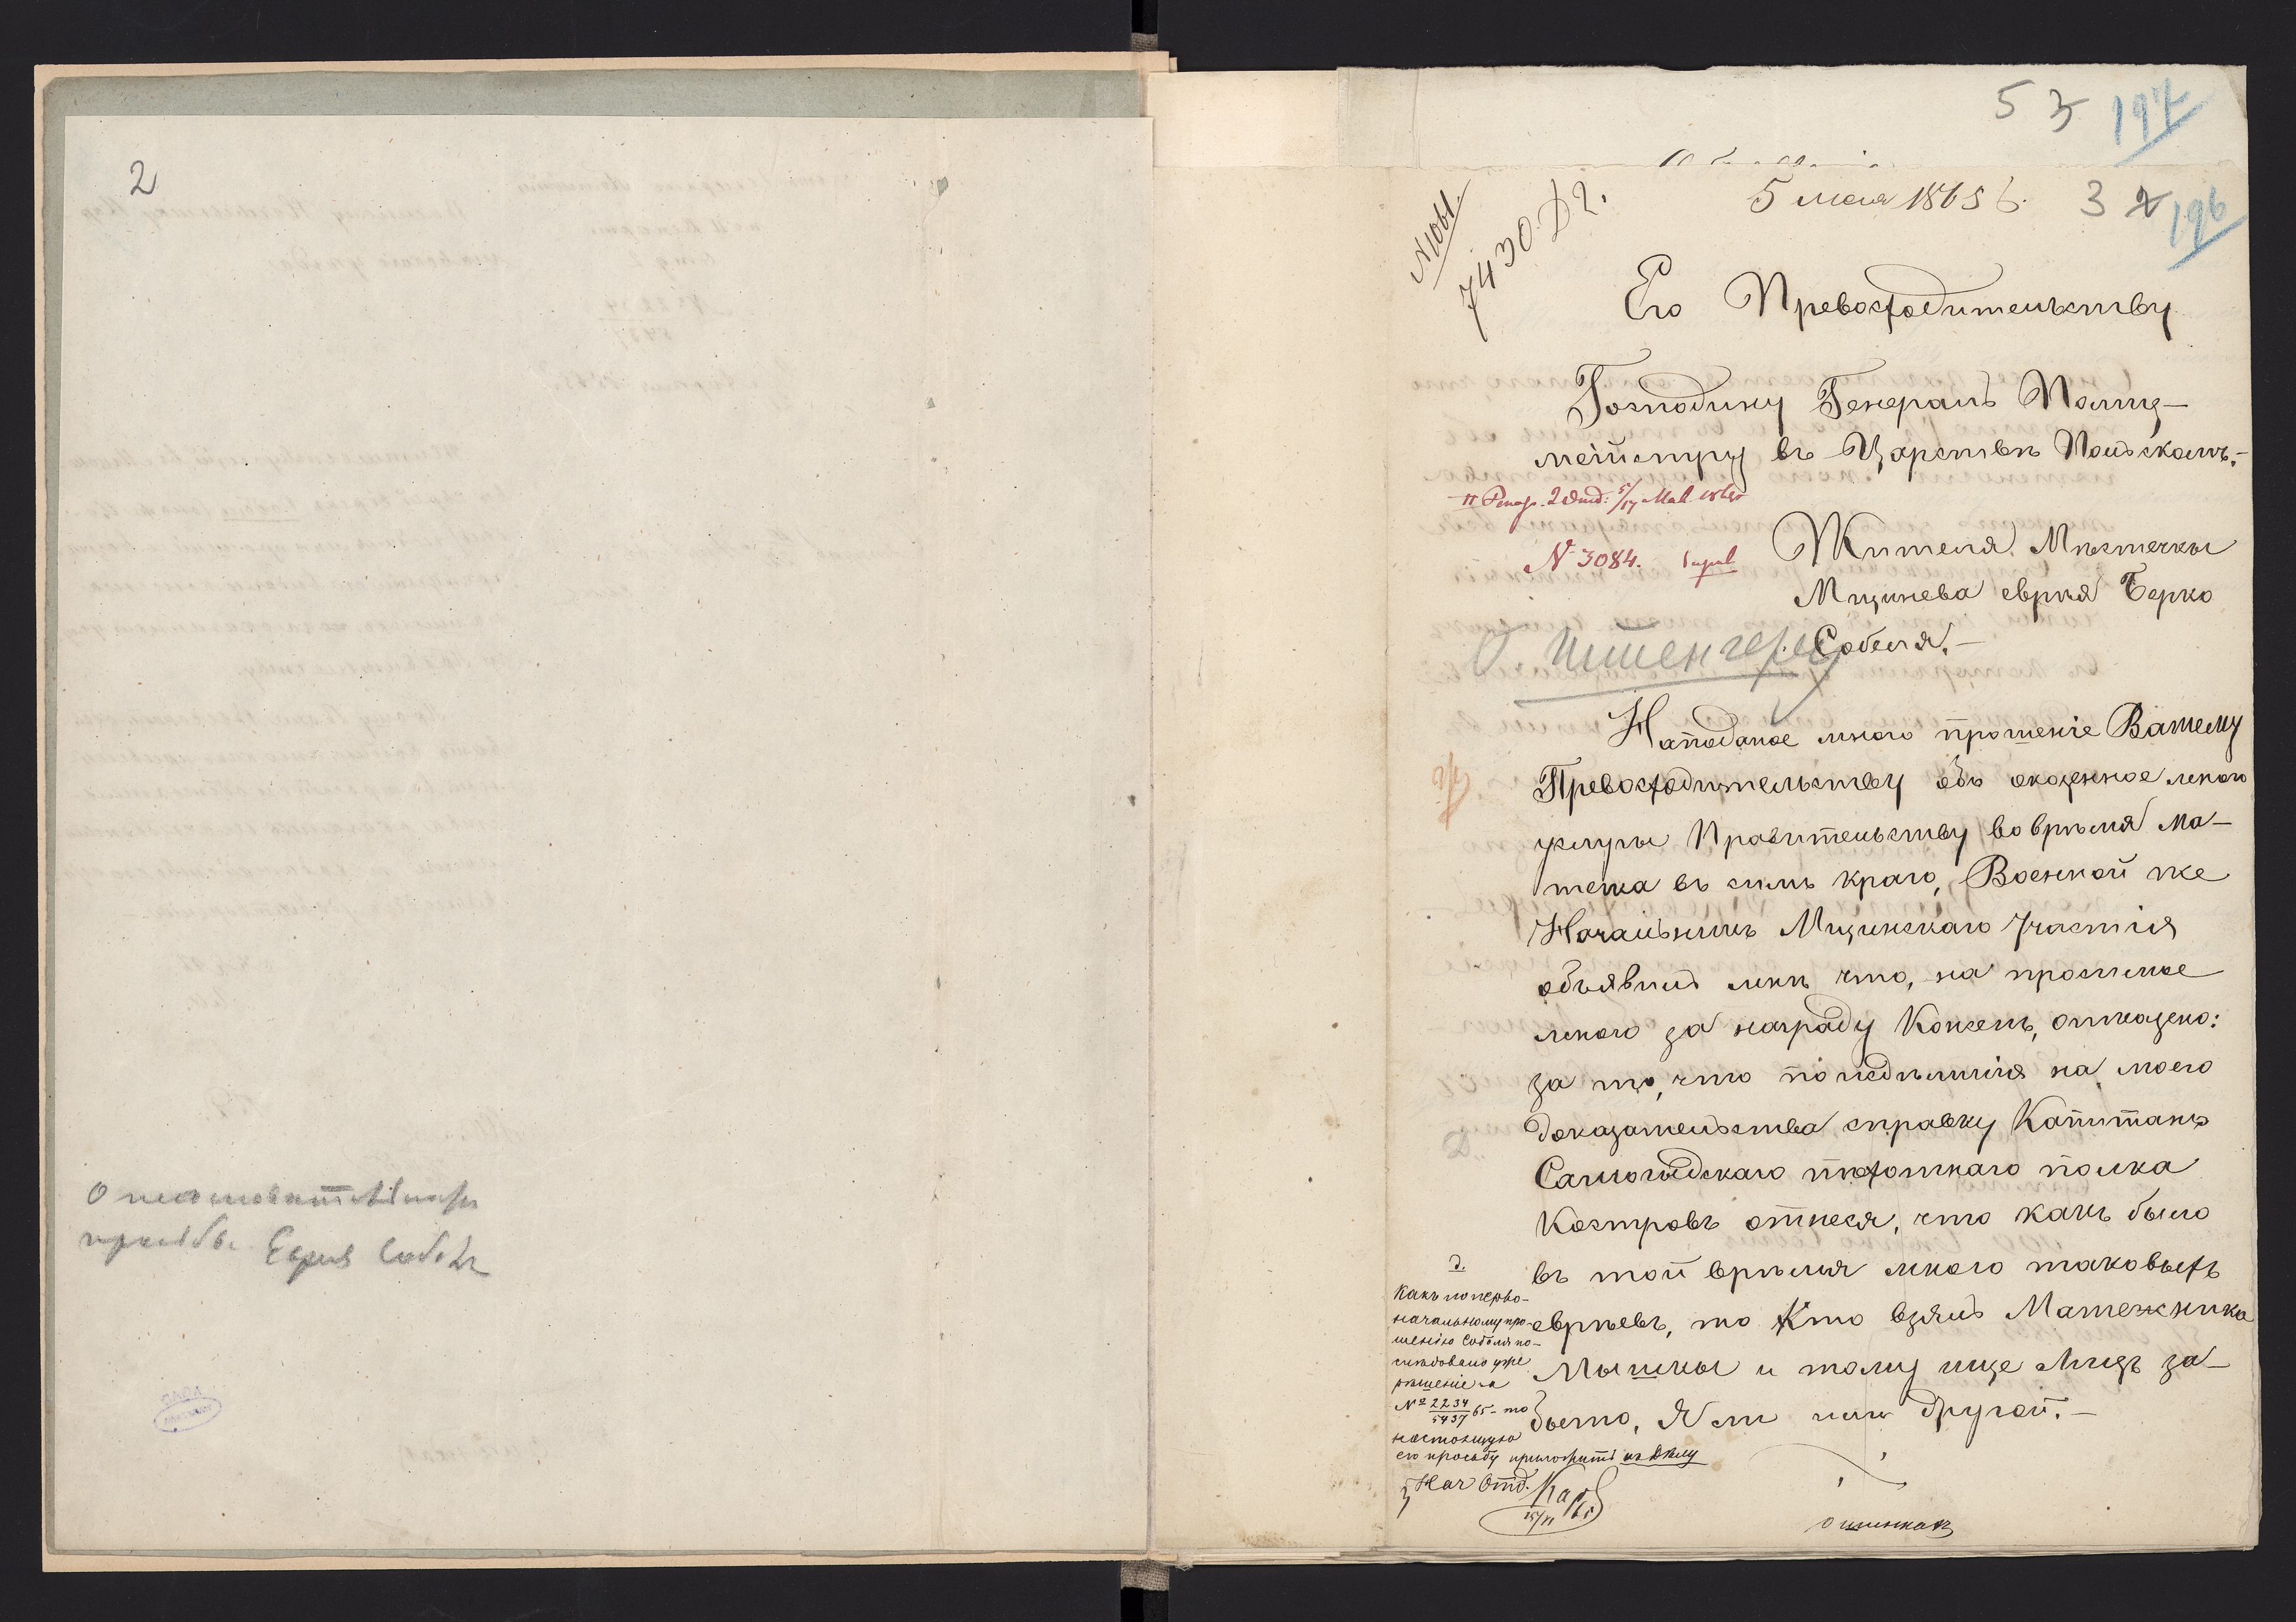 2
О
просьбы Еврея
53 197
5 мая 1865 г. 3 2 196
№1061.
7430 Д 2.
Его Превосходительству
Господину Генералъ Полиц-
мейстеру въ Царствѣ Польскомъ.-
№ 3084.
Жителя Мѣстечкы
Мщинева еврѣя Берко
Собеля.-
Наподаное мною прошеніе Вашему
Превосходительству объ оказенное мною
услугы Правительству во врѣмя Ма-
тежа въ симъ краю, Военной же
Начальникъ Мщинскаго Участія
объявилъ мнѣ что, на просимое
мною за награду Концепъ, отказено:
за то, что поизделишія на моего
доказательства справку Капитанъ
Самогидскаго пѣхотнаго полка
Костровъ отнеся, что какъ было
въ той врѣмя много таковыхъ
еврѣевъ, то Кто взялъ Матежника
Мышкы и тому ище Лицъ за-
быто, Я ли или другой.-
Какъ по перво-
начальному про-
шенію Собеля по-
слѣдовало уже
рѣшеніе за
№ 2234/5437 65 - то
настоящую
его просьбу приложить къ дѣлу
Нач Отд.